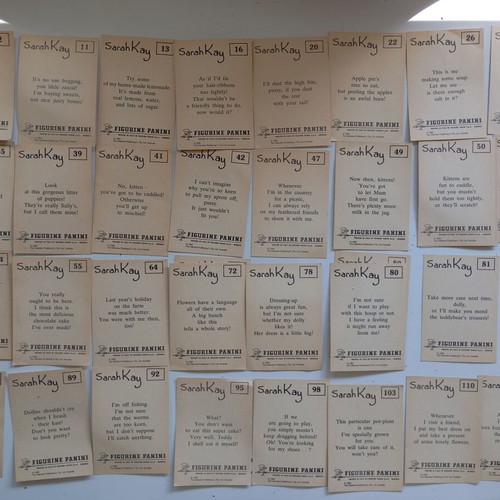 Sarah Kay 11
It's no use begging,
you little rascal!
I'm buying sweets,
not nice juicy bones!
FIGURINE PANINI
Sarah Kay 13
Try some
of my home-made lemonade.
It's made from
real lemons, water,
and lots of sugar.
FIGURINE PANINI
Sarah Kay 16
As if I'd tie
your hair-ribbons
too tightly!
That wouldn't be
a friendly thing to do,
now would it?
FIGURINE PANINI
Sarah Kay 20
I'll dust the high bits,
pussy, if you dust
the rest
with your tail!
FIGURINE PANINI
Sarah Kay 22
Apple pie's
nice to eat,
but peeling the apples
is an awful bore!
FIGURINE PANINI
Sarah Kay 26
This is me
making some soup
Let me see -
is there enough
salt in it?
FIGURINE PANINI
Sarah Kay 39
Look
at this gorgeous litter
of puppies!
They're really Sally's,
but I call them mine!
FIGURINE PANINI
Sarah Kay 41
No, kitten -
you've got to be cuddled!
Otherwise
you'll get up
to mischief!
FIGURINE PANINI
Sarah Kay 42
I can't imagine
why you're so keen
to pull my apron off,
pussy
It just wouldn't
fit you!
FIGURINE PANINI
Sarah Kay 47
Whenever
I'm in the country
for a picnic,
I can always rely
on my feathered friends
to share it with me.
FIGURINE PANINI
Sarah Kay 49
Now then, kittens!
You've got
to let Mum
have first go.
There's plenty more
milk in the jug
FIGURINE PANINI
Sarah Kay 50
Kittens are
fun to cuddle,
but you mustn't
hold them too tightly,
or they'll scratch!
FIGURINE PANINI
Sarah Kay 55
You really
ought to be here.
I think this is
the most delicious
chocolate cake
I've ever made!
FIGURINE PANINI
Sarah Kay 64
Last year's holiday
on the farm
was much better.
You were with me then,
too!
FIGURINE PANINI
Sarah Kay 72
Flowers have a language
all of their own.
A big bunch
like this
tells a whole story!
FIGURINE PANINI
Sarah Kay 78
Dressing-up
is always great fun,
but I'm not sure
whether my dolly
likes it!
Her dress is a little big!
FIGURINE PANINI
Sarah Kay 80
I'm not sure
if I want to play
with this hoop or not
I have a feeling
it might run away
from me!
FIGURINE PANINI
Sarah Kay 81
Take more care next time,
dolly,
or I'll make you mend
the teddybear's trousers!
FIGURINE PANINI
Sarah Kay 89
Dollies shouldn't cry
when I brush
their hair!
Don't you want
to look pretty?
FIGURINE PANINI
Sarah Kay 92
I'm off fishing.
I'm not sure
that the worms
are too keen,
but I don't suppose
I'll catch anything.
FIGURINE PANINI
Sarah Kay 95
What?
You don't want
to eat this super cake?
Very well, Teddy -
I shall eat it myself!
FIGURINE PANINI
Sarah Kay 98
If we
are going to play,
you simply mustn't
keep dragging behind!
Oh! You're looking
for my shoes . . ?
FIGURINE PANINI
Sarah Kay 103
This particular pot-plant
is one
I've specially grown
for you
You will take care of it,
won't you?
FIGURINE PANINI
Sarah Kay 110
Whenever
I visit a friend,
I put my best dress on
and take a present
of some lovely flowers.
FIGURINE PANINI